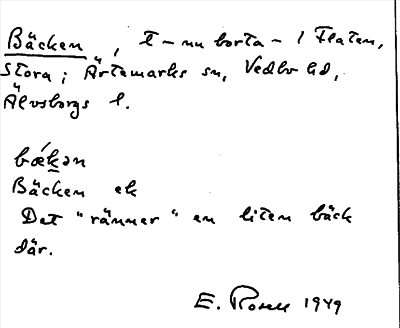 Bäcken, t – nu borta – i Flaten,
Stora; Ärtemarks sn, Vedbo hd,
Älvsborgs l.
bǽkən
Bäcken ek
Det "ränner" en liten bäck
där.
E. Rosell 1949